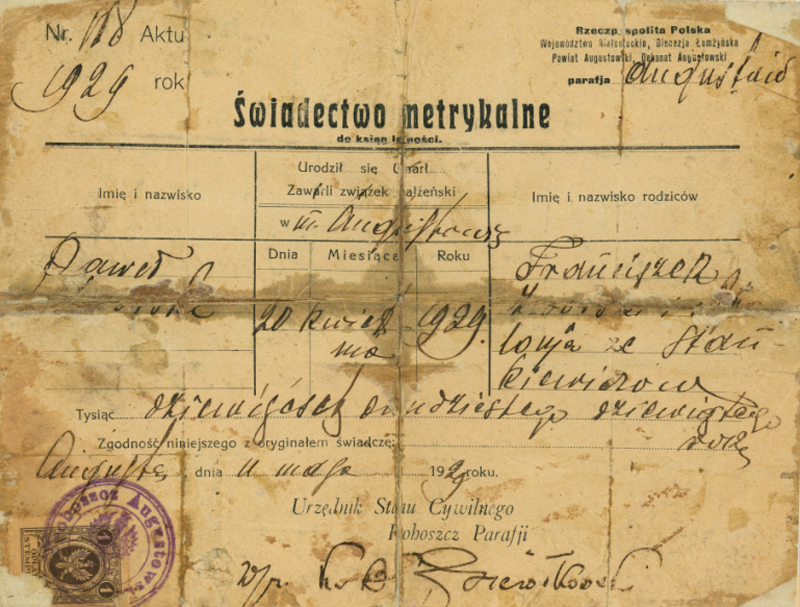 Nr. 118 Aktu
1929 rok
Rzeczpospolita Polska
Województwo Białostockie, Diecezja Łomżyńska
Powiat Augustowski, Dekanat Augustowski
parafja Augustów
Świadectwo metrykalne
do ksiąg ludności.
Imię i nazwisko
Urodził się Umarł
Zawarli związek małżeński
w m. Augustowie
Imię i nazwisko rodziców
Dnia Miesiąca Roku
Paweł
20 kwiet
nia
1929.
Franciszek
i
ze Stan-
kiewiczów
Tysiąc dziewięćset dwudziestego dziewiątego
roku
Zgodność niniejszego z oryginałem świadczę:
Augustów, dnia 11 maja 1929 roku.
Urzędnik Stanu Cywilnego
Proboszcz Parafji
Proboszcz Augustows
OPŁA
STEMP
1 1